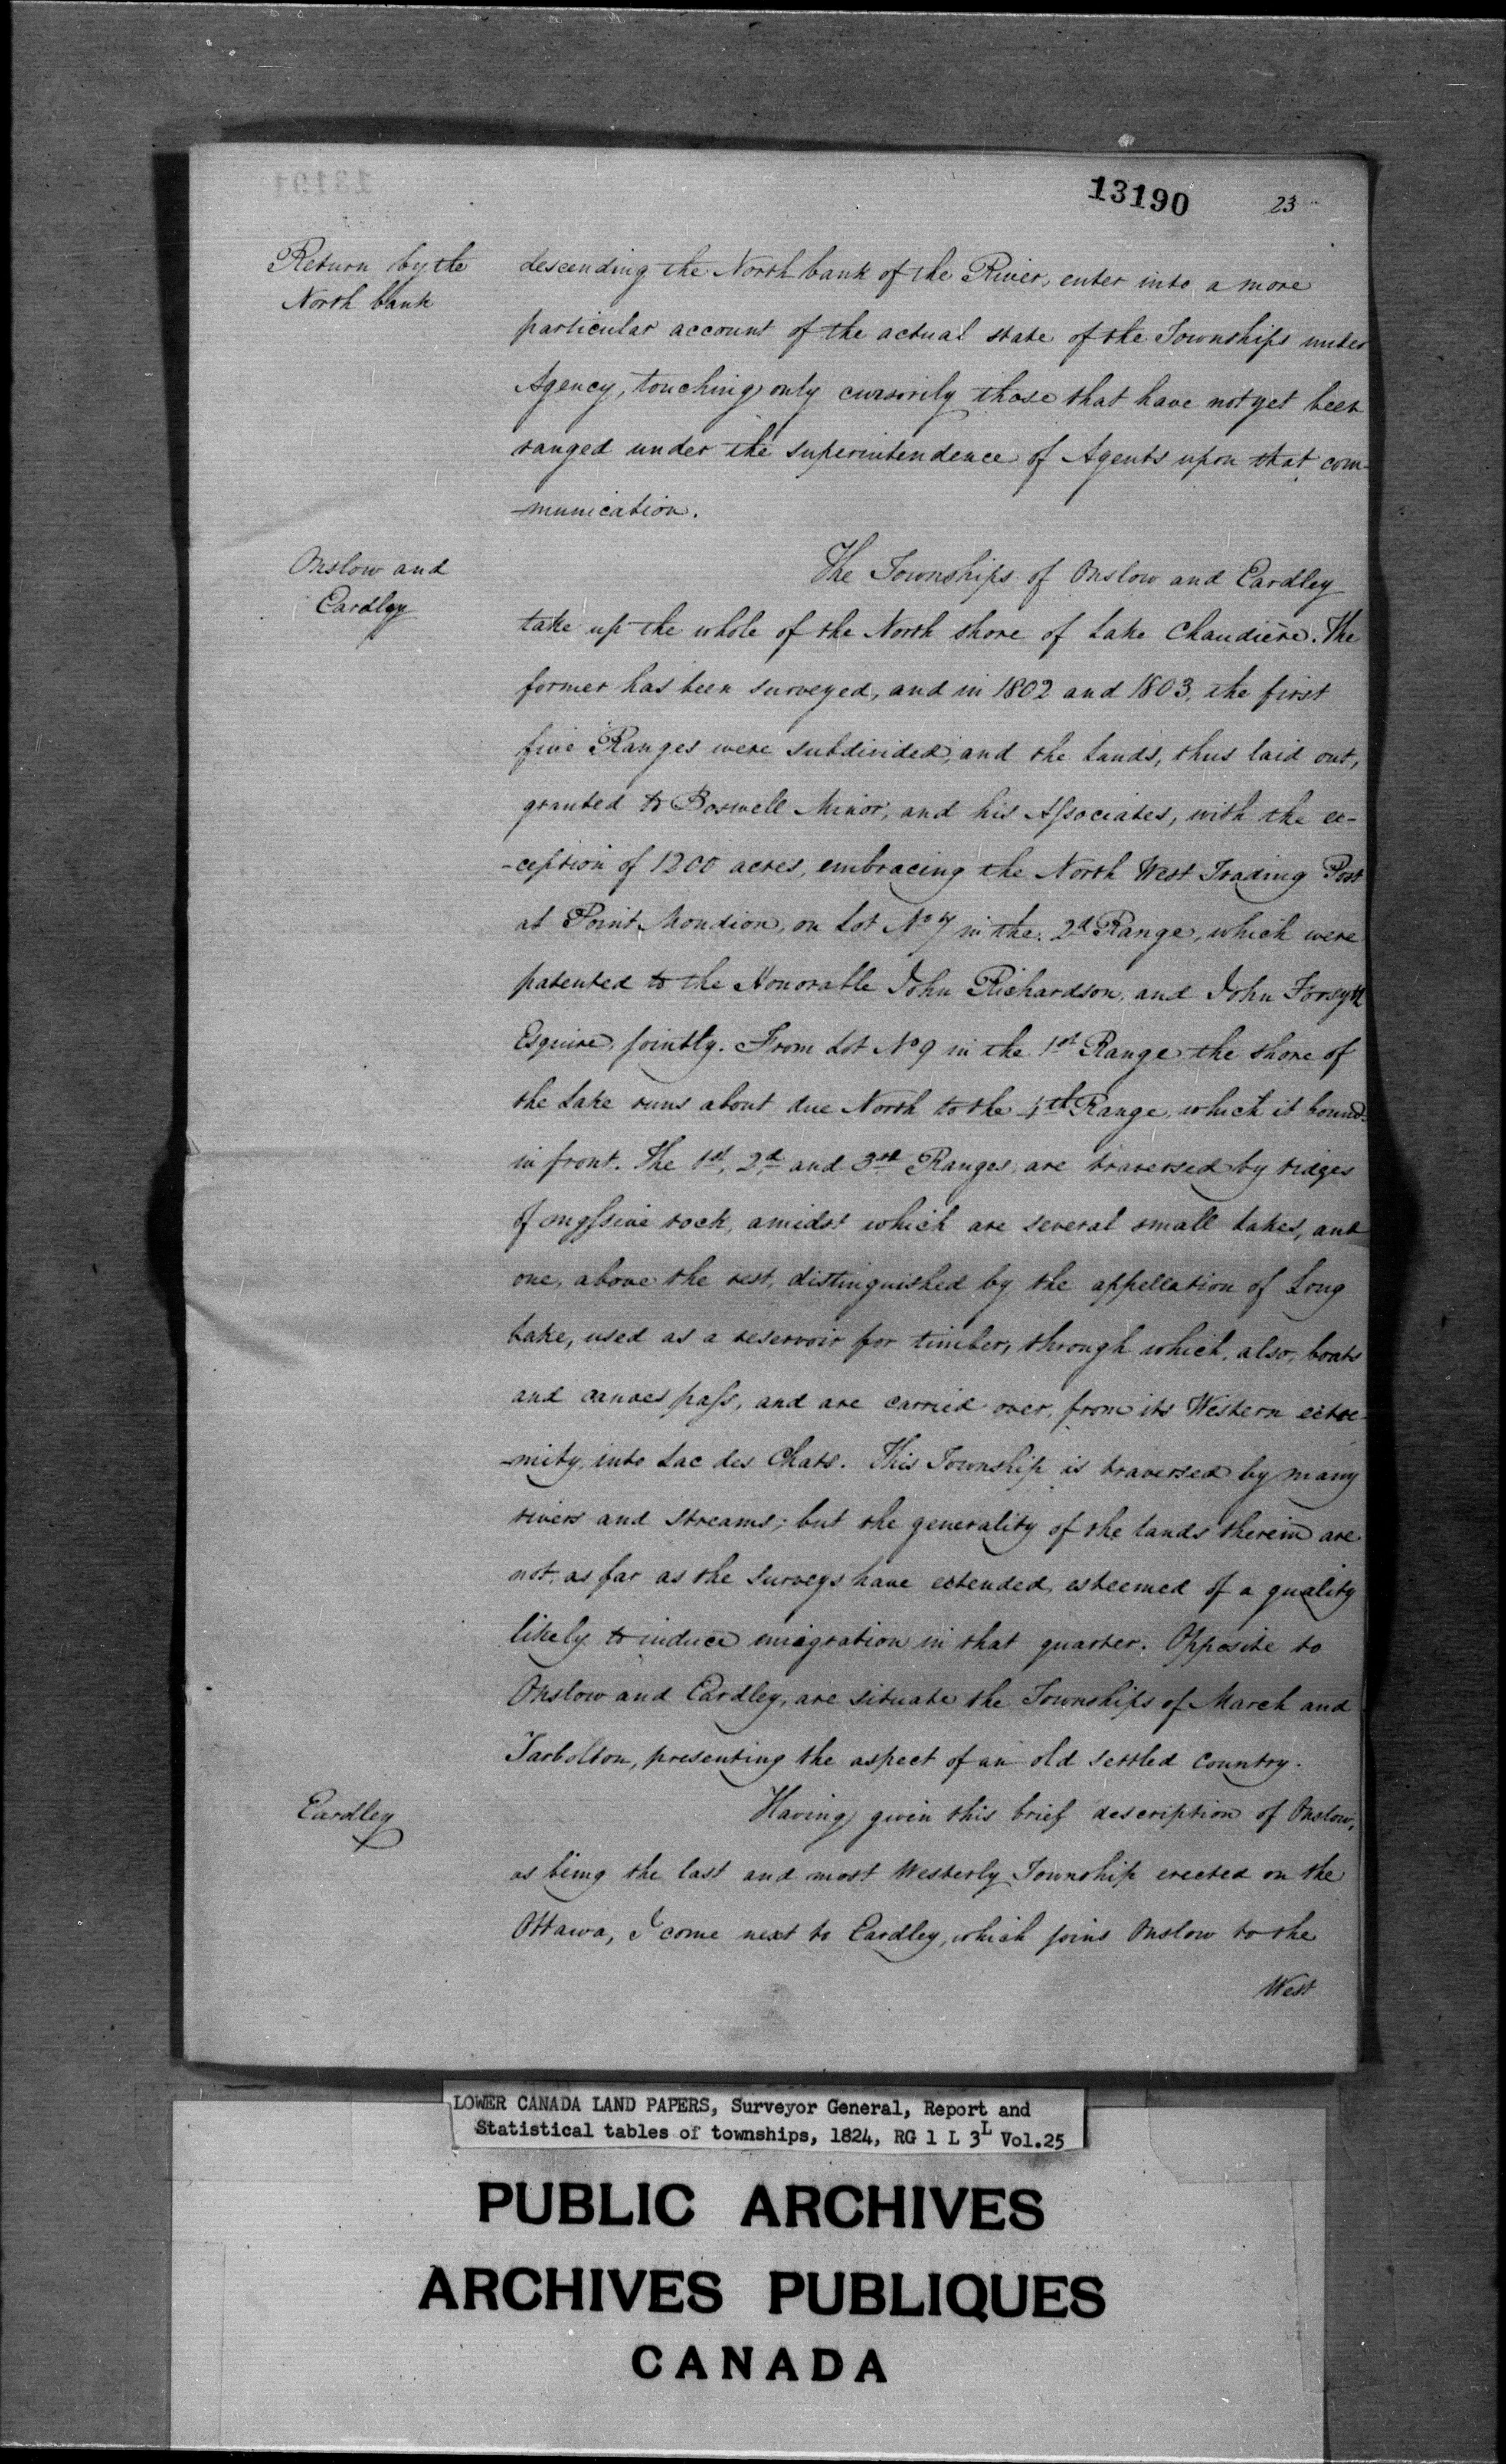 13190 23
Return by the
North bank
descending the North bank of the River, enter into a more
particular account of the actual state of the Townships under
Agency, touching only cursorily those that have not yet been
ranged under the superintendence of Agents upon that com-
-munication.
Onslow and
Eardley
The Townships of Onslow and Eardley
take up the whole of the North shore of Lake Chaudière. The
former has been surveyed, and in 1802 and 1803, the first
five Ranges were subdivided, and the Lands, thus laid out,
granted to Boswell Minor, and his Associates, with the ex-
-ception of 1200 acres, embracing the North West Trading Post
at Point Mondion, on Lot No 7 in the 2d Range, which were
patented to the Honorable John Richardson, and John Forsyth
Esquire, jointly. From Lot No 9 in the 1st Range the shore of
the Lake runs about due North to the 4th Range, which it bounds
in front. The 1st, 2d and 3rd Ranges, are traversed by ridges
of massive rock, amidst which are several small Lakes, and
one, above the rest, distinguished by the appellation of Long
Lake, used as a reservoir for timber, through which, also, boats
and canoes pass, and are carried over, from its Western extre-
-mity, into Lac des Chats. This Township is traversed by many
rivers and streams; but the generality of the lands therein are
not, as far as the surveys have extended, esteemed of a quality
likely to induce emigration in that quarter. Opposite to
Onslow and Eardley, are situate the Townships of March and
Tarbolton, presenting the aspect of an old settled country.
Eardley
Having given this brief description of Onslow,
as being the last and most Westerly Township erected on the
Ottawa, I come next to Eardley, which joins Onslow to the
West
LOWER CANADA LAND PAPERS, Surveyor General, Report and
Statistical tables of townships, 1824, RG 1 L 3L Vol.25
PUBLIC ARCHIVES
ARCHIVES PUBLIQUES
CANADA